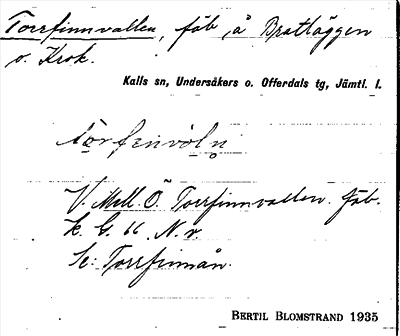 Torrfinnvallen, fäb, å Brattäggen
v. Krok.
Kalls sn, Undersåkers o. Offerdals tg, Jämtl. l.
tòrfenvòln
V. Mell. Ö. Torrfinnvallen. fäb.
k. G. 66. N. v.
Se: Torrfinnån.
BERTIL BLOMSTRAND 1935